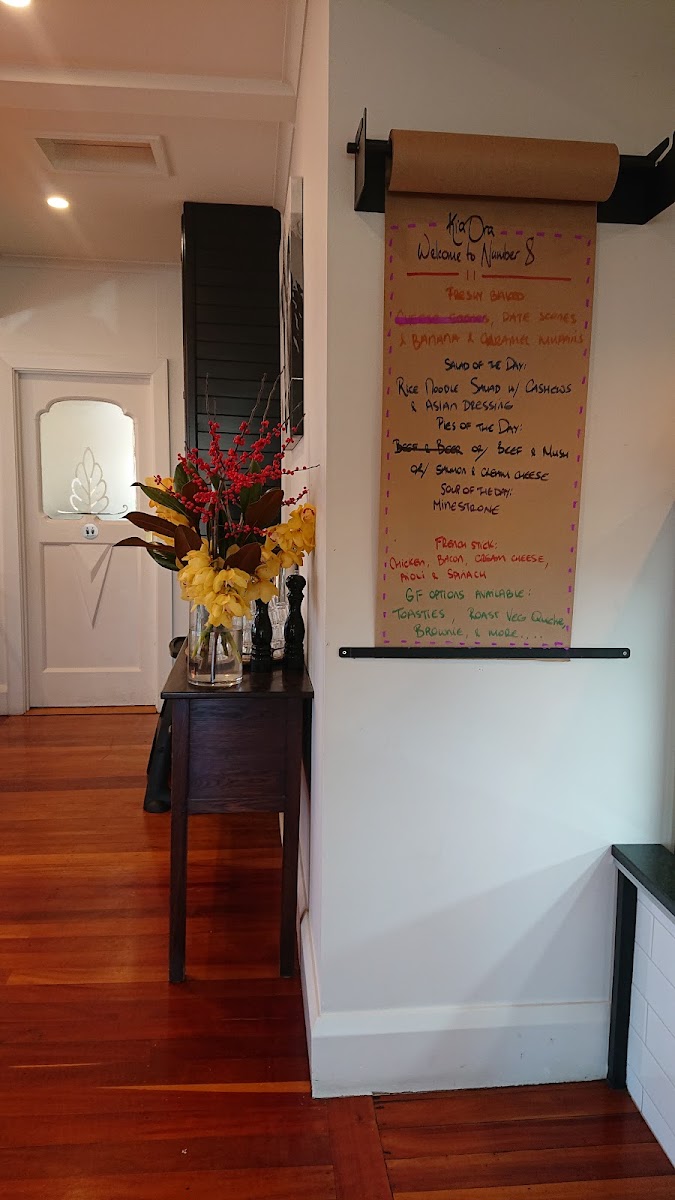 Kia Ora
Welcome to Number 8
FRESHLY BAKED
CHEESE SCONES, DATE SCONES
& BANANA & CARAMEL MUFFINS
SALAD OF THE DAY:
RICE NOODLE SALAD W/ CASHEWS
& ASIAN DRESSING
PIES OF THE DAY:
BEEF & BEER OR/ BEEF & MUSH
OR/ SALMON & CREAM CHEESE
SOUP OF THE DAY:
MINESTRONE
FRENCH STICK:
CHICKEN, BACON, CREAM CHEESE,
AIOLI & SPINACH
GF OPTIONS AVAILABLE:
TOASTIES, ROAST VEG QUICHE,
BROWNIE, & MORE.....